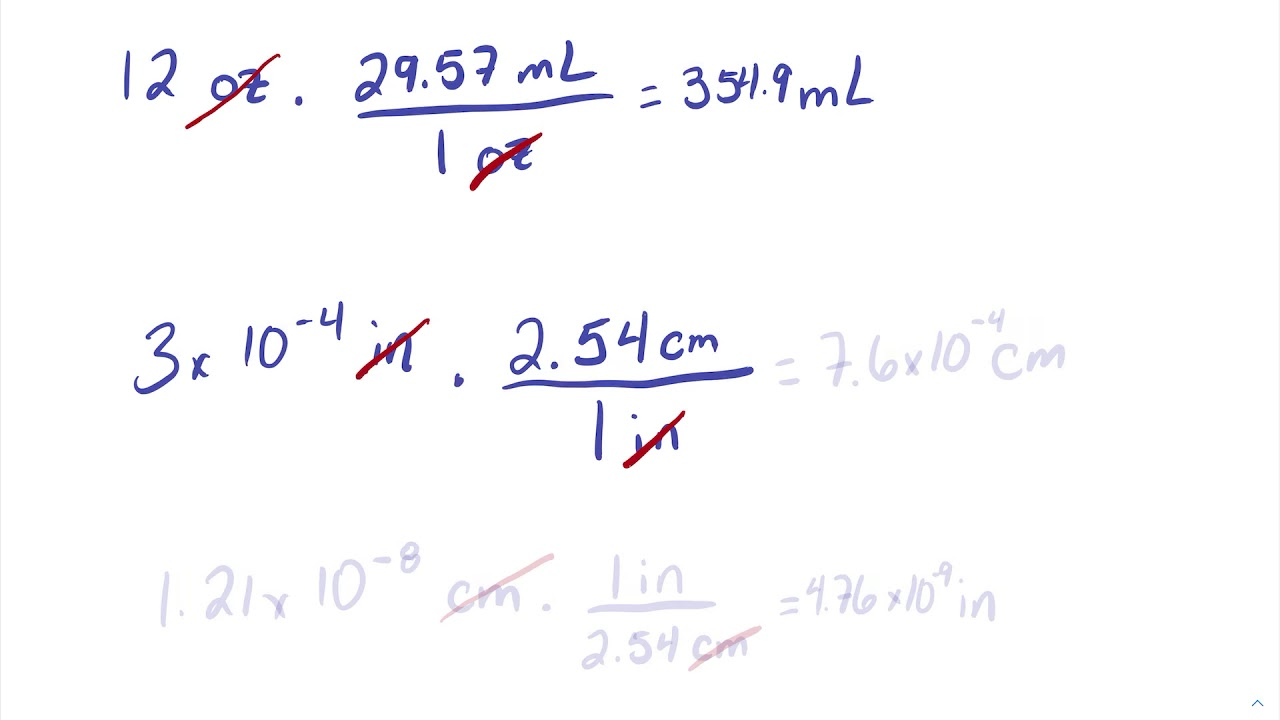 12 oz · 29.57 mL / 1 oz = 354.9 mL
3 x 10⁻⁴ in · 2.54 cm / 1 in = 7.6 x 10⁻⁴ cm
1.21 x 10⁻⁸ cm · 1 in / 2.54 cm = 4.76 x 10⁻⁹ in